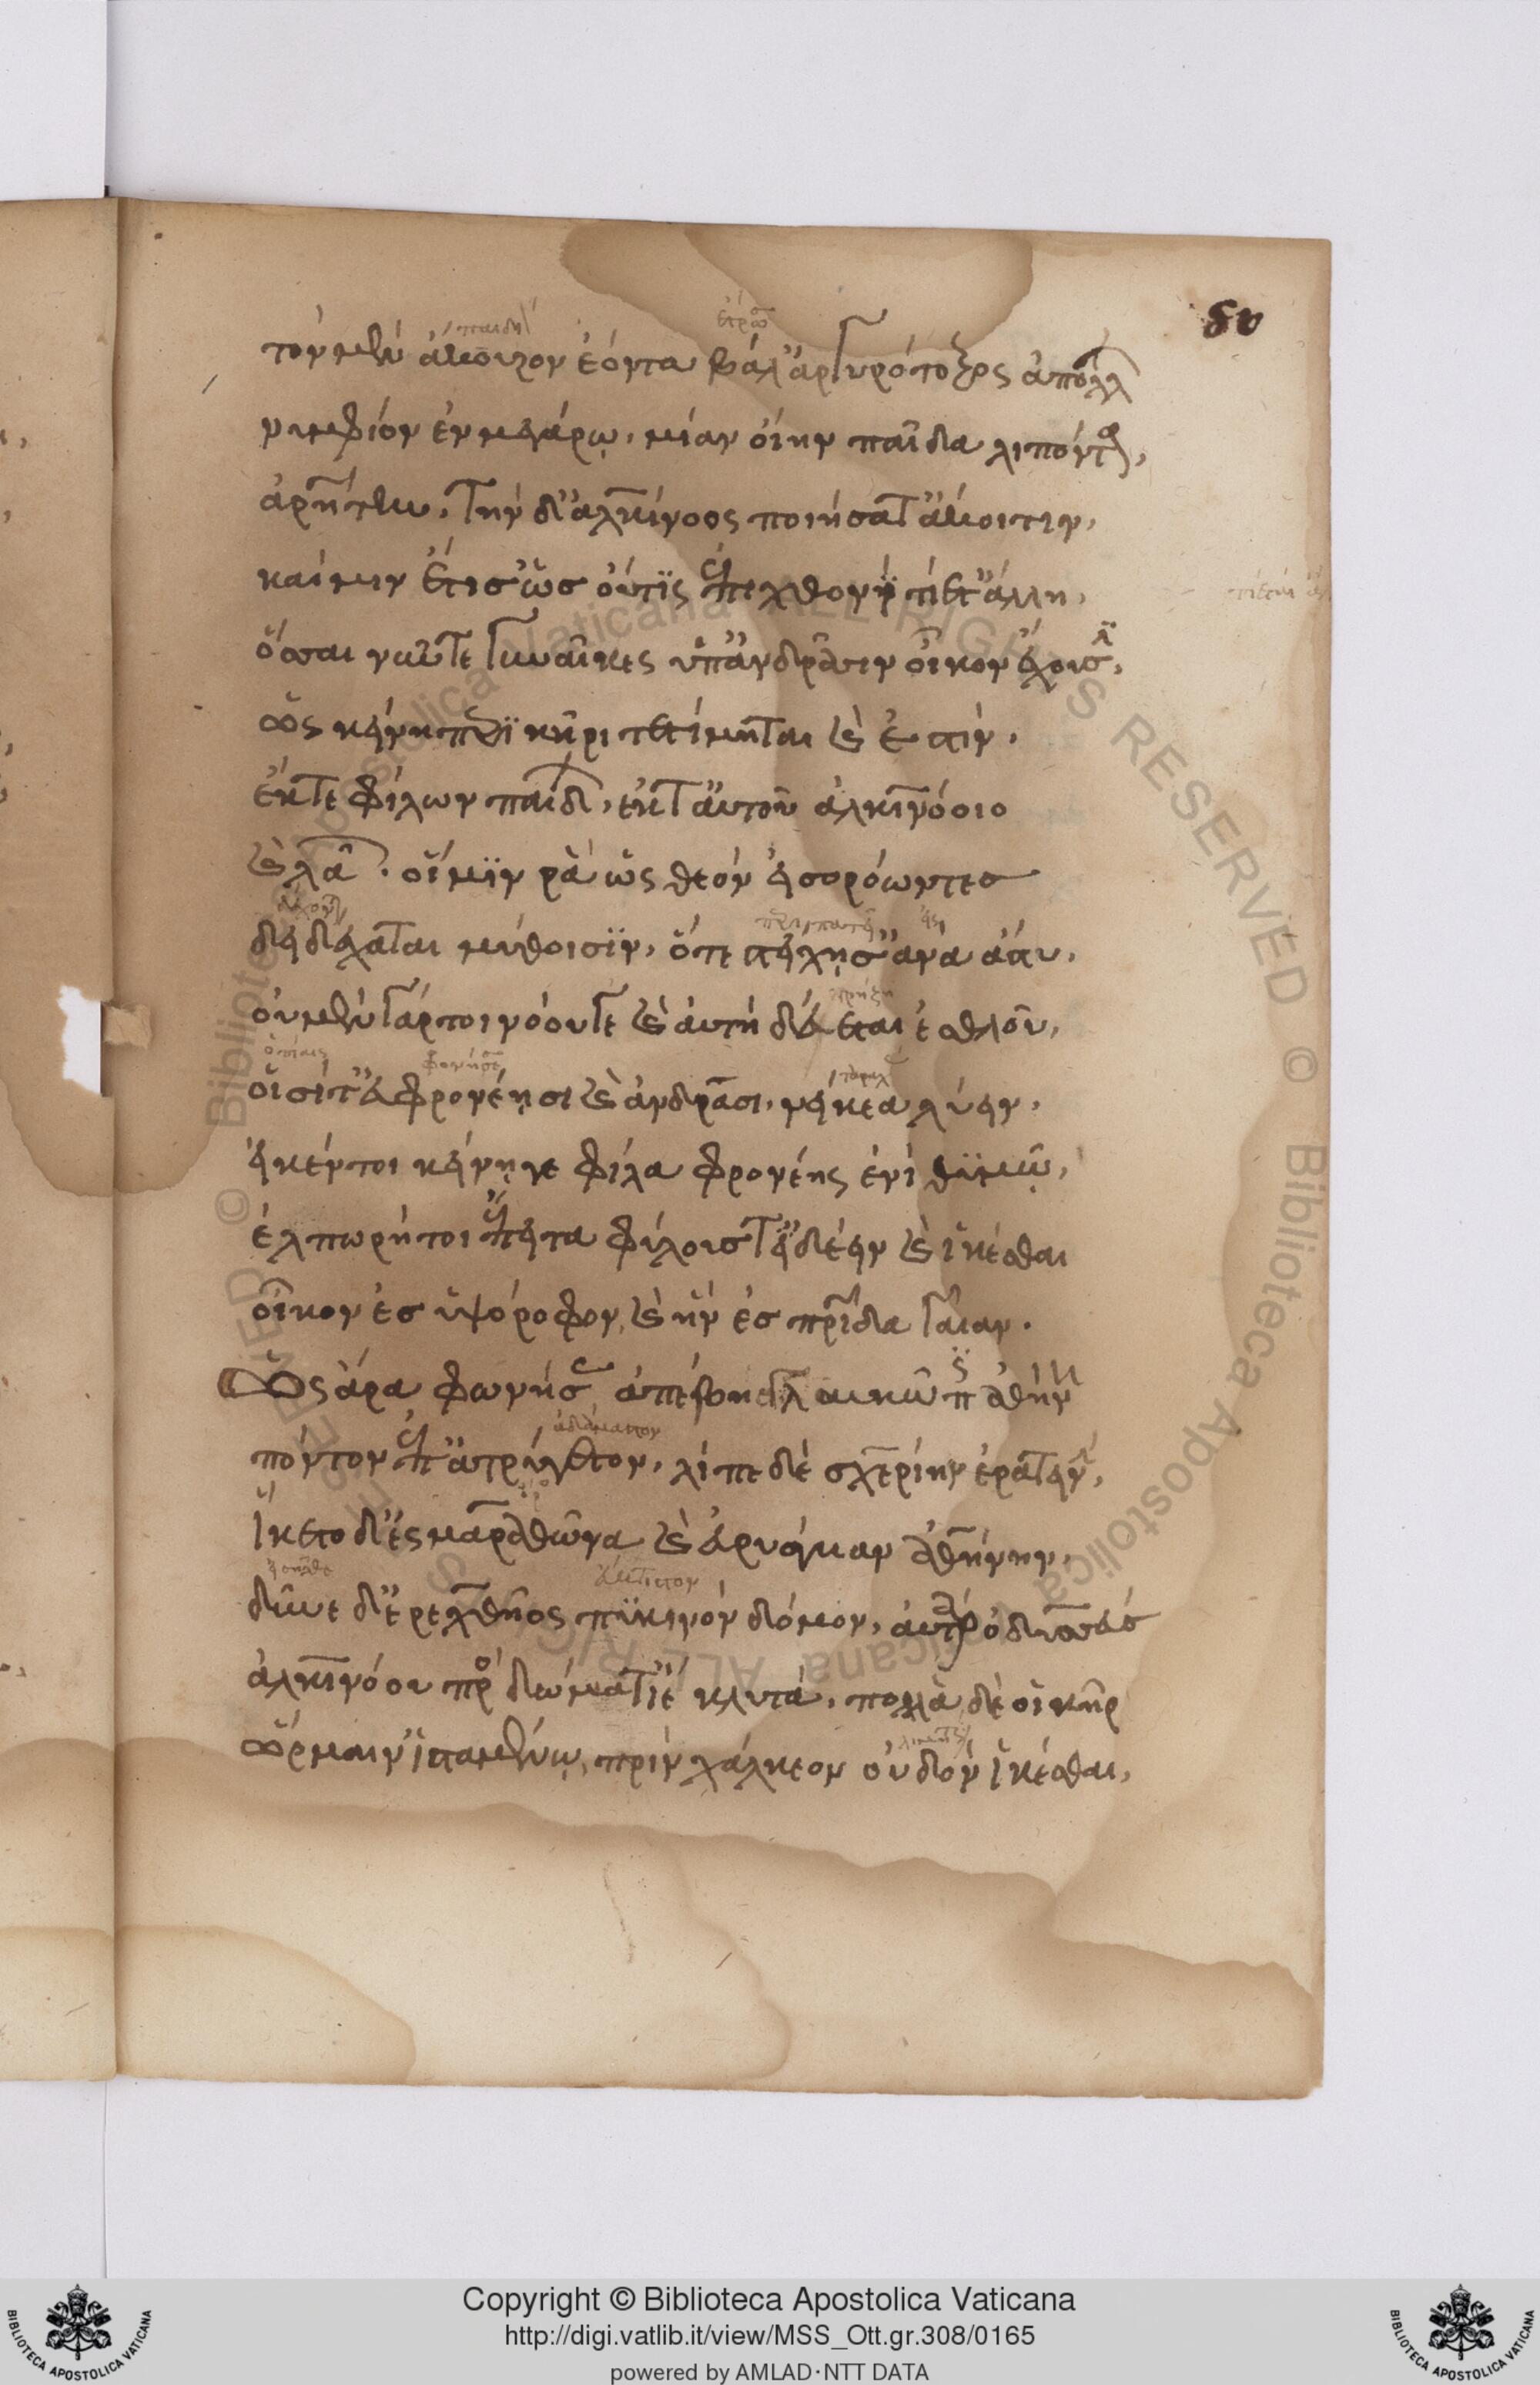 τὸν μὲν ἄκουρον ἐόντα βάλ' ἀργυρότοξος ἀπόλλων
νυμφίον ἐν μεγάρω, μίαν οἴην παῖδα λιπόντα,
ἀρήτην. τὴν δ' ἀλκίνοος ποιήσατ' ἄκοιτιν,
καί μιν ἔτισ' ὡς οὔτις ἐπιχθονὶ τίετ' ἄλλη,
ὅσσαι νῦν τε γυναῖκες ὑπ' ἀνδράσιν οἶκον ἔχουσιν,
ὣς κείνη περὶ κῆρι τετίμηταί καὶ ἐστιν.
ἔκ τε φίλων παίδων, ἔκ τ' αὐτοῦ ἀλκινόοιο
καὶ λαῶν. οἵ μιν ῥὰ ὡς θεὸν εἰσορόωντες
δειδέχαται μύθοισιν, ὅτε στείχησ' ἀνὰ ἄστυ.
οὐ μὲν γάρ τοι νόου τε καὶ αὐτὴ δεύεται ἐσθλοῦ,
οἷσί τ' εὐφρονέησι καὶ ἀνδράσι, νείκεα λύειν.
εἴ κέν τοι κείνη γε φίλα φρονέης ἐνὶ θυμῷ,
ἐλπωρή τοι ἔπειτα φίλους τ' ἰδέειν καὶ ἱκέσθαι
οἶκον ἐς ὑψόροφον, καὶ ἣν ἐς πατρίδα γαῖαν.
Ὣς ἄρα φωνήσασ' ἀπέβη γλαυκῶπις ἀθήνη
πόντον ἐπ' ἀτρύγετον, λίπε δὲ σχερίην ἐρατεινήν,
ἵκετο δ' ἐς μαραθῶνα καὶ εὐρυάγυιαν ἀθήνην,
δῦνε δ' ἐρεχθῆος πυκινὸν δόμον, αὐτὰρ ὀδυσσεὺς
ἀλκινόου πρὸς δώματ' ἴε κλυτά. πολλὰ δέ οἱ κῆρ
ὥρμαιν' ἱσταμένῳ, πρὶν χάλκεον οὐδὸν ἱκέσθαι,
Copyright © Biblioteca Apostolica Vaticana
http://digi.vatlib.it/view/MSS_Ott.gr.308/0165
powered by AMLAD·NTT DATA
BIBLIOTECA APOSTOLICA VATICANA
BIBLIOTECA APOSTOLICA VATICANA